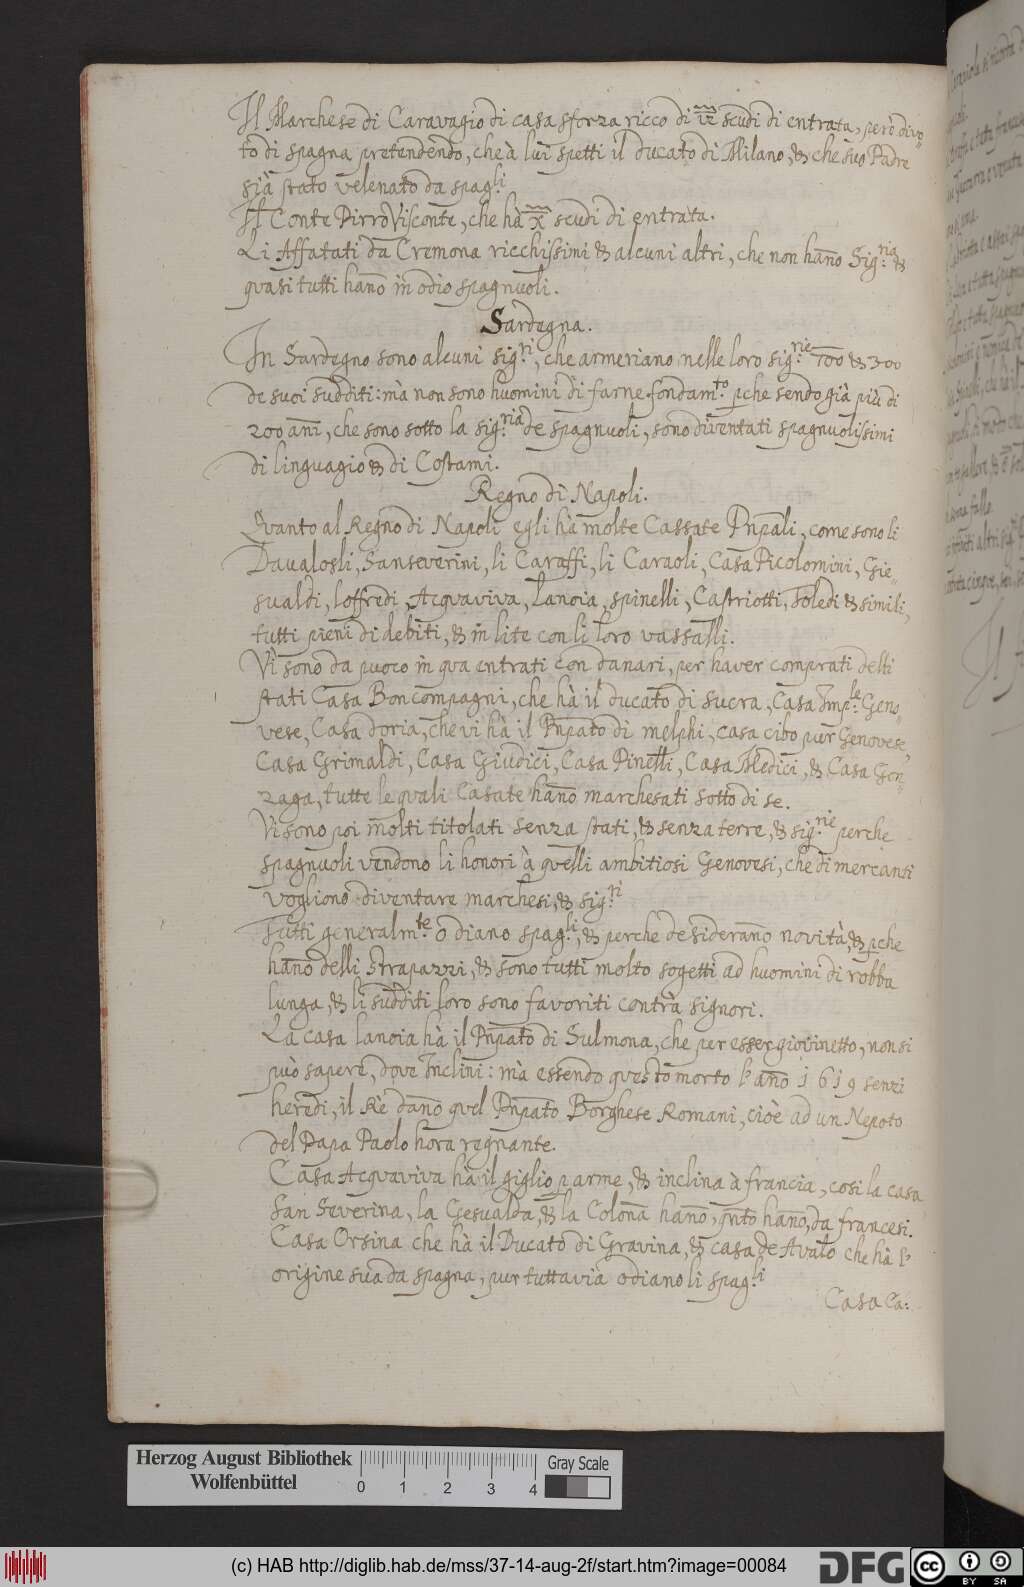 Il Marchese di Caravagio di casa sforza ricco di scudi di entrata, però divo
to di spagna pretendendo, che à lui spetti il ducato di Milano, & che suo Padre
sià stato velenato da spag:li
Il Conte Pirro Visconte, che hà x̅ scudi di entrata.
Li Affatati da Cremona ricchissimi & alcuni altri, che non hano Sig:ria &
quasi tutti hano in odio spagnuoli.
Sardegna.
In Sardegno sono alcuni sig:ri, che armeriano nelle loro sig:rie 700 & 300
de suoi sudditi: mà non sono huomini di farne fondam:to pche sendo già più di
200 ani, che sono sotto la sig:ria de spagnuoli, sono diventati spagnuolissimi
di linguagio & di Costami.
Regno di Napoli.
Qvanto al Regno di Napoli egli hà molte Cassate Pnpali, come sono li
Davalosli, Sanseverini, li Caraffi, li Caraoli, Casa Picolomini, Gie,,
sualdi, loffredi, Acqvaviva, Lanoia, spinelli, Castriotti, Toledi & simili,
tutti pieni di debiti, & in lite con li loro vassalli.
Vi sono da puoco in qua entrati con danari, per haver comprati delti
stati Casa Boncompagni, che hà il ducato di sucra, Casa Imp:le Geno,,
vese, Casa doria, che vi hà il Pnpato di melphi, casa cibo pur Genovese,
Casa Grimaldi, Casa Giudici, Casa Pinelli, Casa Medici, & Casa Gon,,
zaga, tutte le quali Casate hano marchesati sotto di se.
Vi sono poi molti titolati senza stati, & senza terre, & sig:rie perche
spagnuoli vendono li honori à quelli ambitiosi Genovesi, che di mercanti
vogliono diventare marchesi, & sig:ri
Tutti generalm:te odiano spag:li, & perche desiderano novità, & pche
hano delli strapazzi, & sono tutti molto sogetti ad huomini di robba
lunga, & li sudditi loro sono favoriti contrà signori.
La casa lanoia hà il Pnpato di Sulmona, che per esser giovinetto, non si
può sapere, dove Inclini: mà essendo questo morto l'ano 1619 senzi
heredi, il Rè dano quel Pnpato Borghese Romani, cioè ad un Nepoto
del Papa Paolo hora regnante.
Casa Acqvaviva hà il giglio p arme, & inclina à francia, cosi la casa
San Severina, la Gesualda, & la Colona hano, qnto hano, da francesi.
Casa Orsina che hà il Ducato di Gravina, & casa de Avalo che hà l'
origine sua da spagna, pur tuttavia odiano li spag:li
Casa Ca:
Herzog August Bibliothek
Wolfenbüttel
0 1 2 3 4
Gray Scale
(c) HAB http://diglib.hab.de/mss/37-14-aug-2f/start.htm?image=00084
DFG
cc BY SA